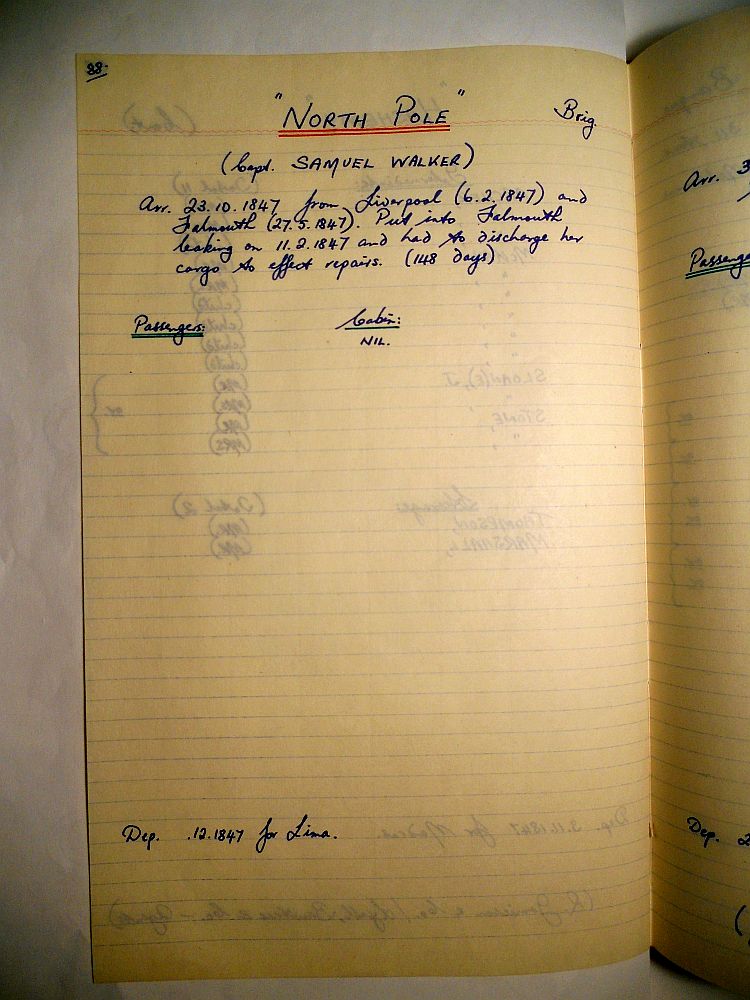 88.
"NORTH POLE" Brig.
(Capt. SAMUEL WALKER)
Arr. 23.10.1847 from Liverpool (6.2.1847) and
Falmouth (27.5.1847). Put into Falmouth
leaking on 11.2.1847 and had to discharge her
cargo to effect repairs. (148 days)
Passengers: Cabin:
NIL.
Dep. .12.1847 for Lima.
Arr. 3
Passenge
Dep. 2
(